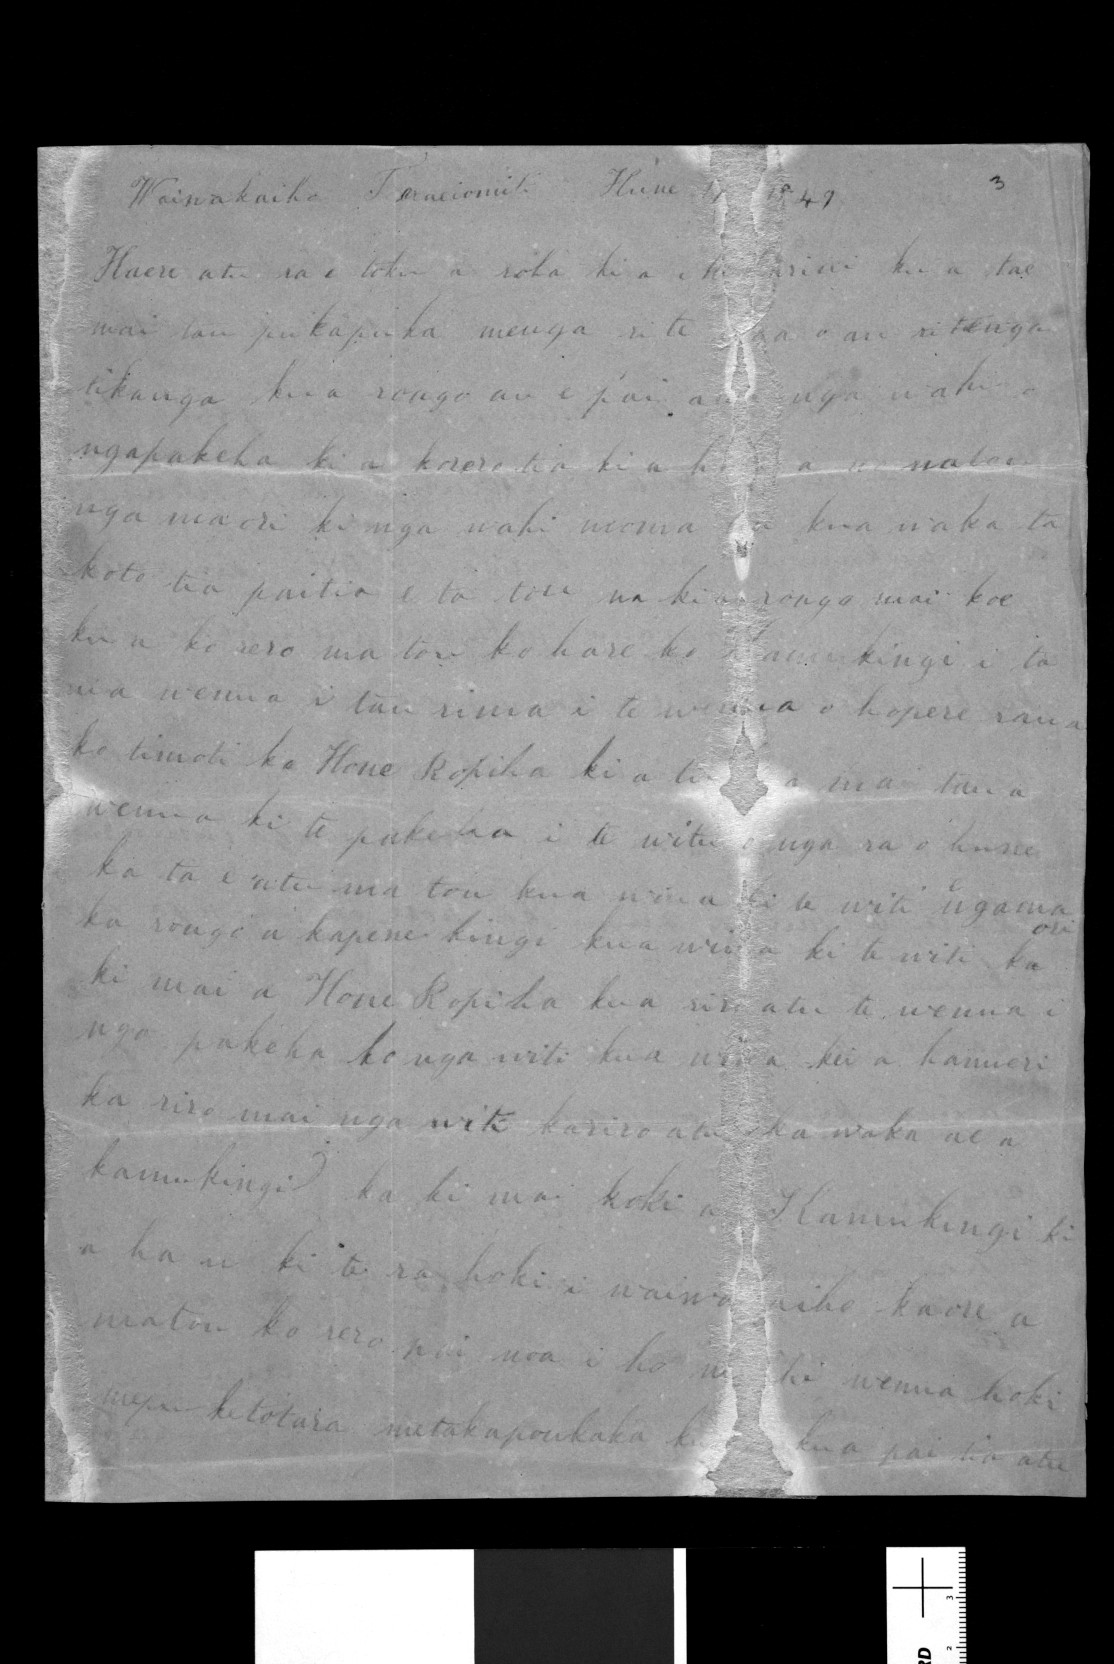 Waiwakaiho Hune 1847 3
Haere atu ra e toku aroha ki a kua tae
mai tau pukapuka menga rite o au ritenga
tikanga kua rongo au e pai ana nga wahi o
ngapakeha ki a korerotia ki a matou
nga maori ki nga wahi wenua kua waka ta
koto tia paitia e ta tou na kia rongo mai koe
kua ko rero ma tou ko hare ko kamukingi i ta
na wenua i tau rima i te wenua o hopere rana
ko timoti ko Hone Ropiha ki a tu a mai tana
wenua ki te pakeha i te witu o nga ra o hune
ka ta e atu ma tou kua wiua ki te witi e ngama
ori
ka rongo a kapene kingi kua wiua ki te witi ka
ki mai a Hone Ropiha kua riro atu te wenua i
nga pakeha ko nga witi kua wiua kei a hanueri
ka riro mai nga witi kariro atu ka waka ae a
kamukingi ka ki mai hoki a Kamukingi ki
a ha u ki te ra hoki i waiwakaiho kaore a
matou ko rero noa i ho wahi wenua hoki
mepu ketotara metakapoukaka kua pai tia atu
RD
3
2